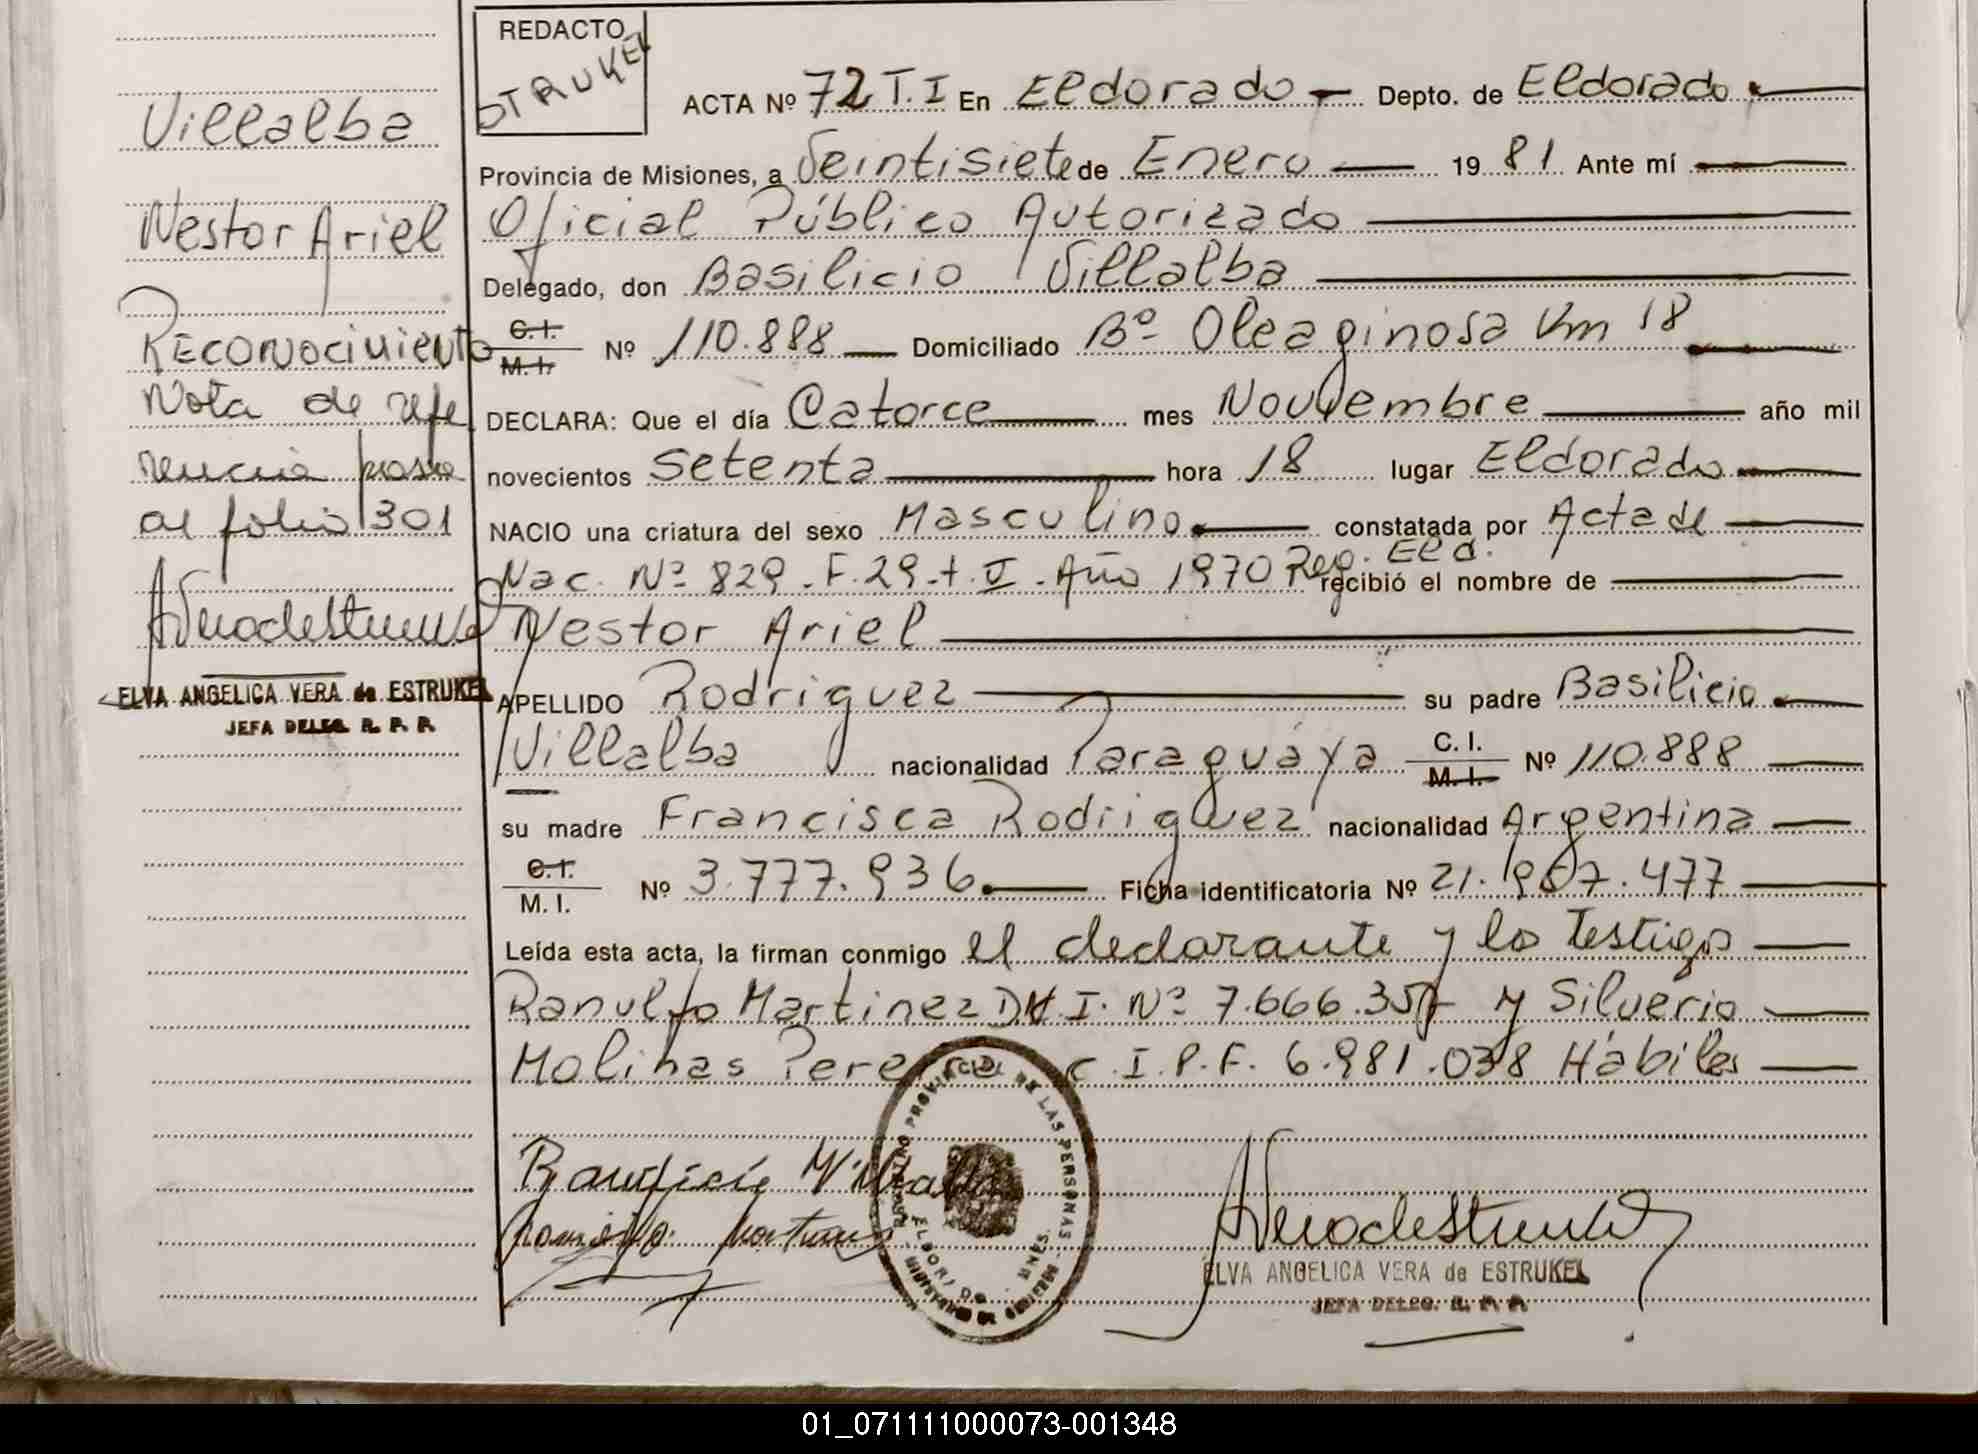 REDACTO
STRUKEL
ACTA Nº 72 T.I En Eldorado Depto. de Eldorado
Villalba
Provincia de Misiones, a Veintisiete de Enero 1981 Ante mí
Nestor Ariel
Oficial Público Autorizado
Delegado, don Basilicio Villalba
Reconocimiento
C.I. M.I. Nº 110.888 Domiciliado Bº Oleaginosa Km 18
Nota de refe
DECLARA: Que el día Catorce mes Noviembre año mil
rencia pasa
novecientos Setenta hora 18 lugar Eldorado
al folio 301
NACIO una criatura del sexo Masculino constatada por Acta de
Nac. Nº 829. F. 29. t. II. Año 1970 Reg. Eld. recibió el nombre de
Nestor Ariel
ELVA ANGELICA VERA de ESTRUKEL
JEFA DELEG. R. P. P.
APELLIDO Rodriguez su padre Basilicio
Villalba nacionalidad Paraguaya C. I. M. I. Nº 110.888
su madre Francisca Rodriguez nacionalidad Argentina
C.I. M. I. Nº 3.777.936 Ficha identificatoria Nº 21.967.477
Leída esta acta, la firman conmigo el declarante y lo testigo
Ranulfo Martinez D.N.I. Nº 7.666.357 y Silverio
Molinas Perez C.I.P.F. 6.981.038 Hábiles
REGISTRO PROVINCIAL DE LAS PERSONAS
ELDORADO MNES.
ELVA ANGELICA VERA de ESTRUKEL
JEFA DELEG. R. P. P.
01_071111000073-001348